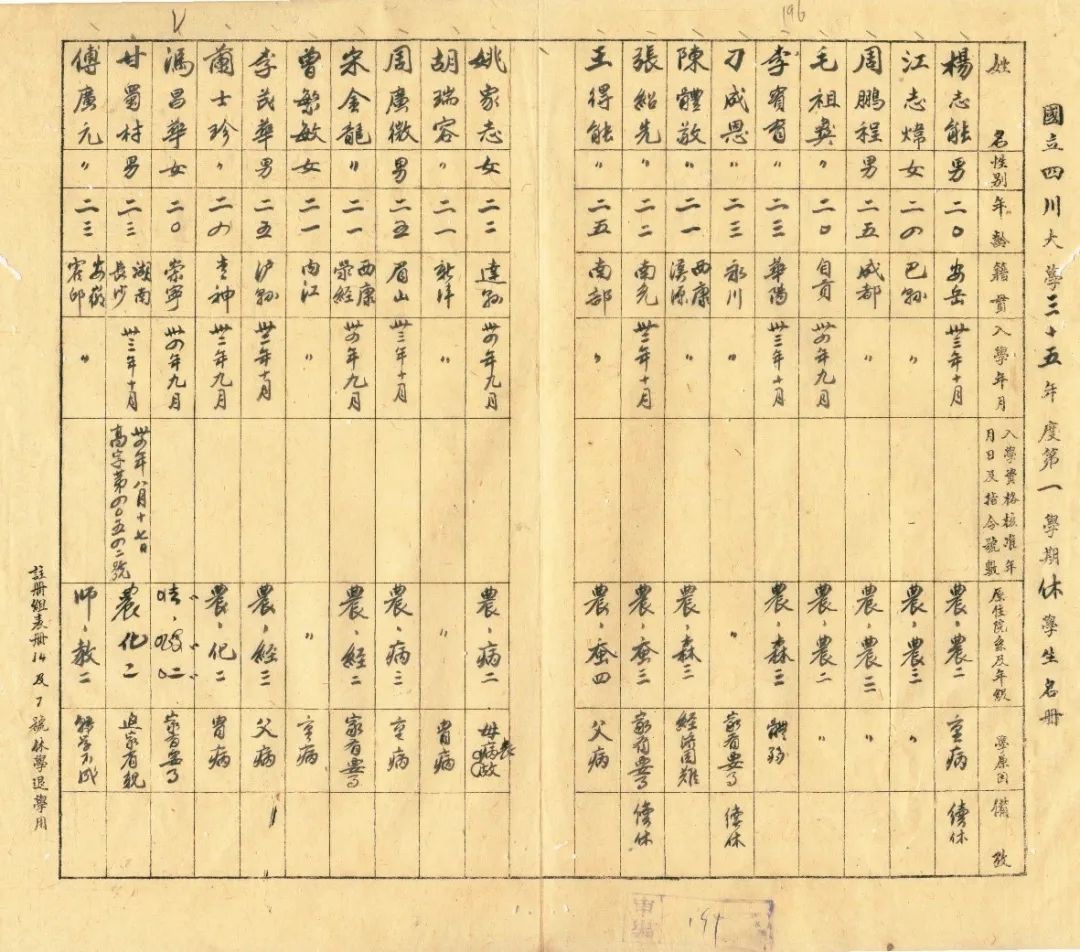 196
國立四川大學三十五年度第一學期休學生名冊
姓名 性別 年齡 籍貫 入學年月 入學資格核准年月日及指令號數 原住院系及年級 學原因 備攷
楊志能 男 二〇 安岳 卅三年十月 農，農二 重病 續休
江志煒 女 二四 巴縣 〃 農，農三 〃
周鵬程 男 二五 成都 〃 農，農三 〃
毛祖彝 〃 二〇 自貢 卅四年九月 農，農二 〃
李賓育 〃 二三 華陽 卅三年十月 農，森三 體弱
刁成恩 〃 二三 永川 〃 〃 家有要事 續休
陳體敬 〃 二一 西康漢源 〃 農，森三 經濟困難
張紹先 〃 二二 南充 卅三年十月 農，蚕三 家有要事 續休
王得能 〃 二五 南部 〃 農，蚕四 父病
姚家志 女 二二 達縣 卅四年九月 農，病二 母病
胡瑞容 〃 二一 新津 〃 胃病
周廣徵 男 二五 眉山 卅三年十月 農，病三 重病
宋金龍 〃 二一 西康滎經 卅四年九月 農，經二 家有要事
曾繁敏 女 二一 內江 〃 〃 重病
李茂華 男 二五 沪縣 卅三年十月 農，經三 父病
蕭士珍 〃 二四 卅三年九月 農，化二 胃病
馮昌華 女 二〇 崇寧 卅四年九月 家有要事
甘蜀村 男 二三 湖南長沙 卅三年十月 卅四年八月十七日高字第四〇五四二號 農化二
傅廣元 〃 二三 〃 師，教二
註冊組表冊14及7號休學退學用
194